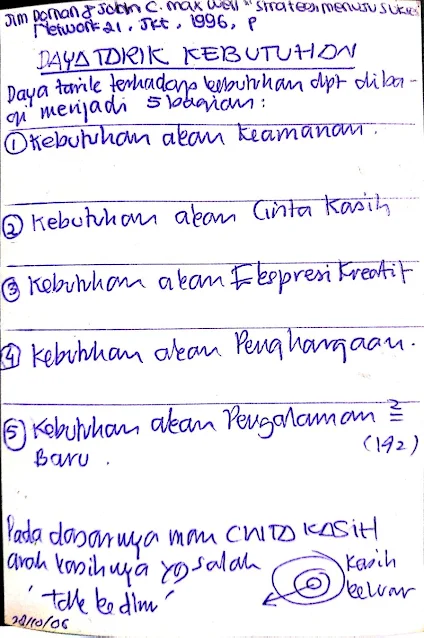 Jim Dornan & John C. Maxwell "Strategi menuju sukses
Network 21, Jkt, 1996, p
DAYA TARIK KEBUTUHAN
Daya tarik terhadap kebutuhan dpt diba-
gi menjadi 5 bagian:
① Kebutuhan akan keamanan.
② Kebutuhan akan Cinta Kasih
③ Kebutuhan akan Ekspresi Kreatif
④ Kebutuhan akan Penghargaan.
⑤ Kebutuhan akan Pengalaman 2
Baru. (142)
Pada dasarnya man CINTA KASIH
arah kasihnya yg salah
'tdk ke dlm'
kasih
keluar
28/10/06